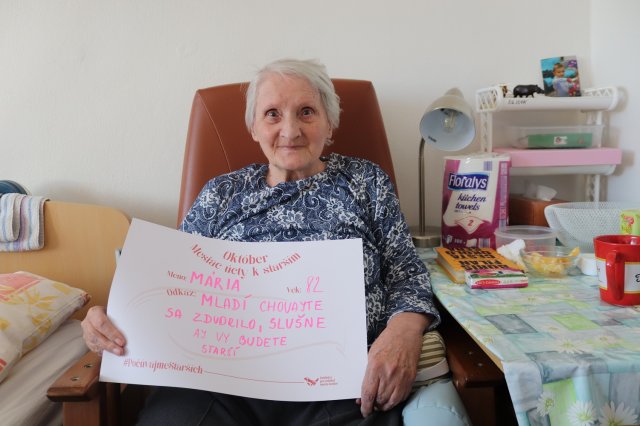 Október
Mesiac úcty k starším
Meno: MÁRIA Vek: 82
Odkaz: MLADÍ CHOVAJTE
SA ZDVORILO, SLUŠNE
AJ VY BUDETE
STARŠÍ
#PočúvajmeStarších
Floralys
kitchen
towels
2